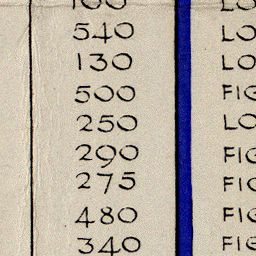 540 LO
130 LO
500 FIG
250 LO
290 FIG
275 FIG
480 FIG
340 FIG